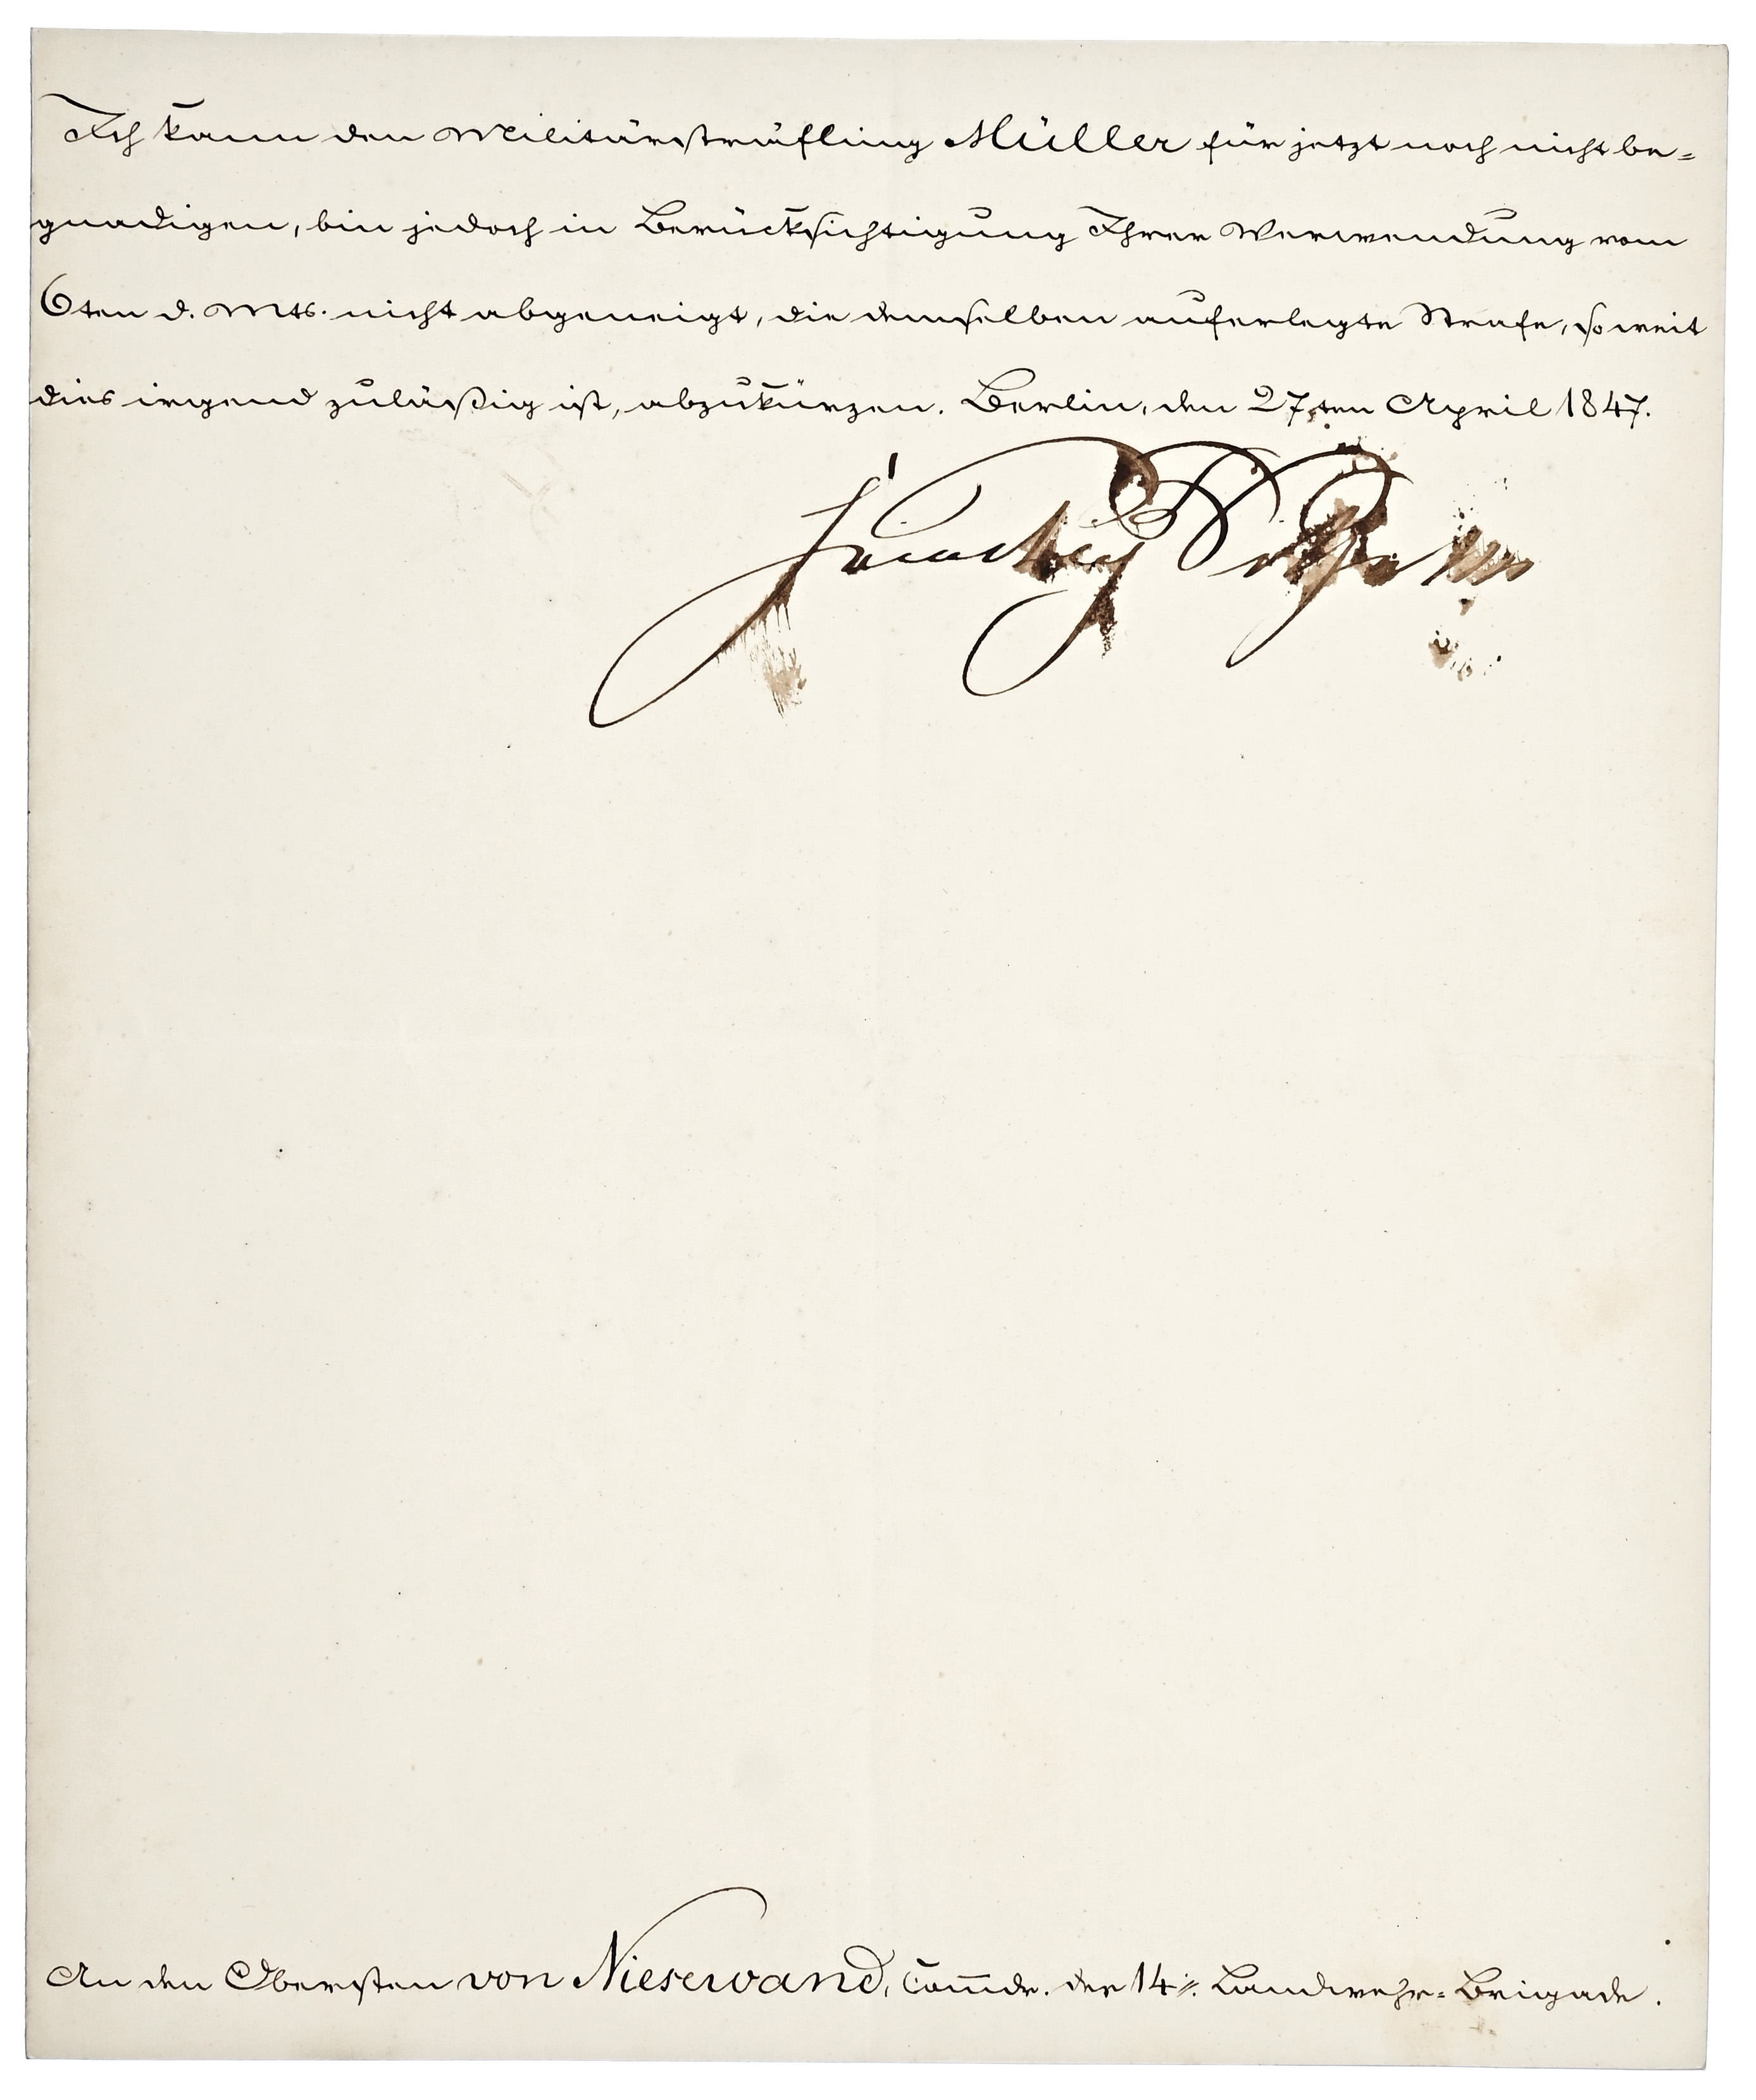 Ich kann den Militärsträfling Müller für jetzt noch nicht be=
gnadigen, bin jedoch in Berücksichtigung Ihrer Verwendung vom
6ten d. Mts. nicht abgeneigt, die demselben auferlegte Strafe, so weit
dies irgend zuläßig ist, abzukürzen. Berlin, den 27ten April 1847.
Friedrich Wilhelm
An den Obersten von Niesewand, Com̄dr. der 14t. Landwehr=Brigade.